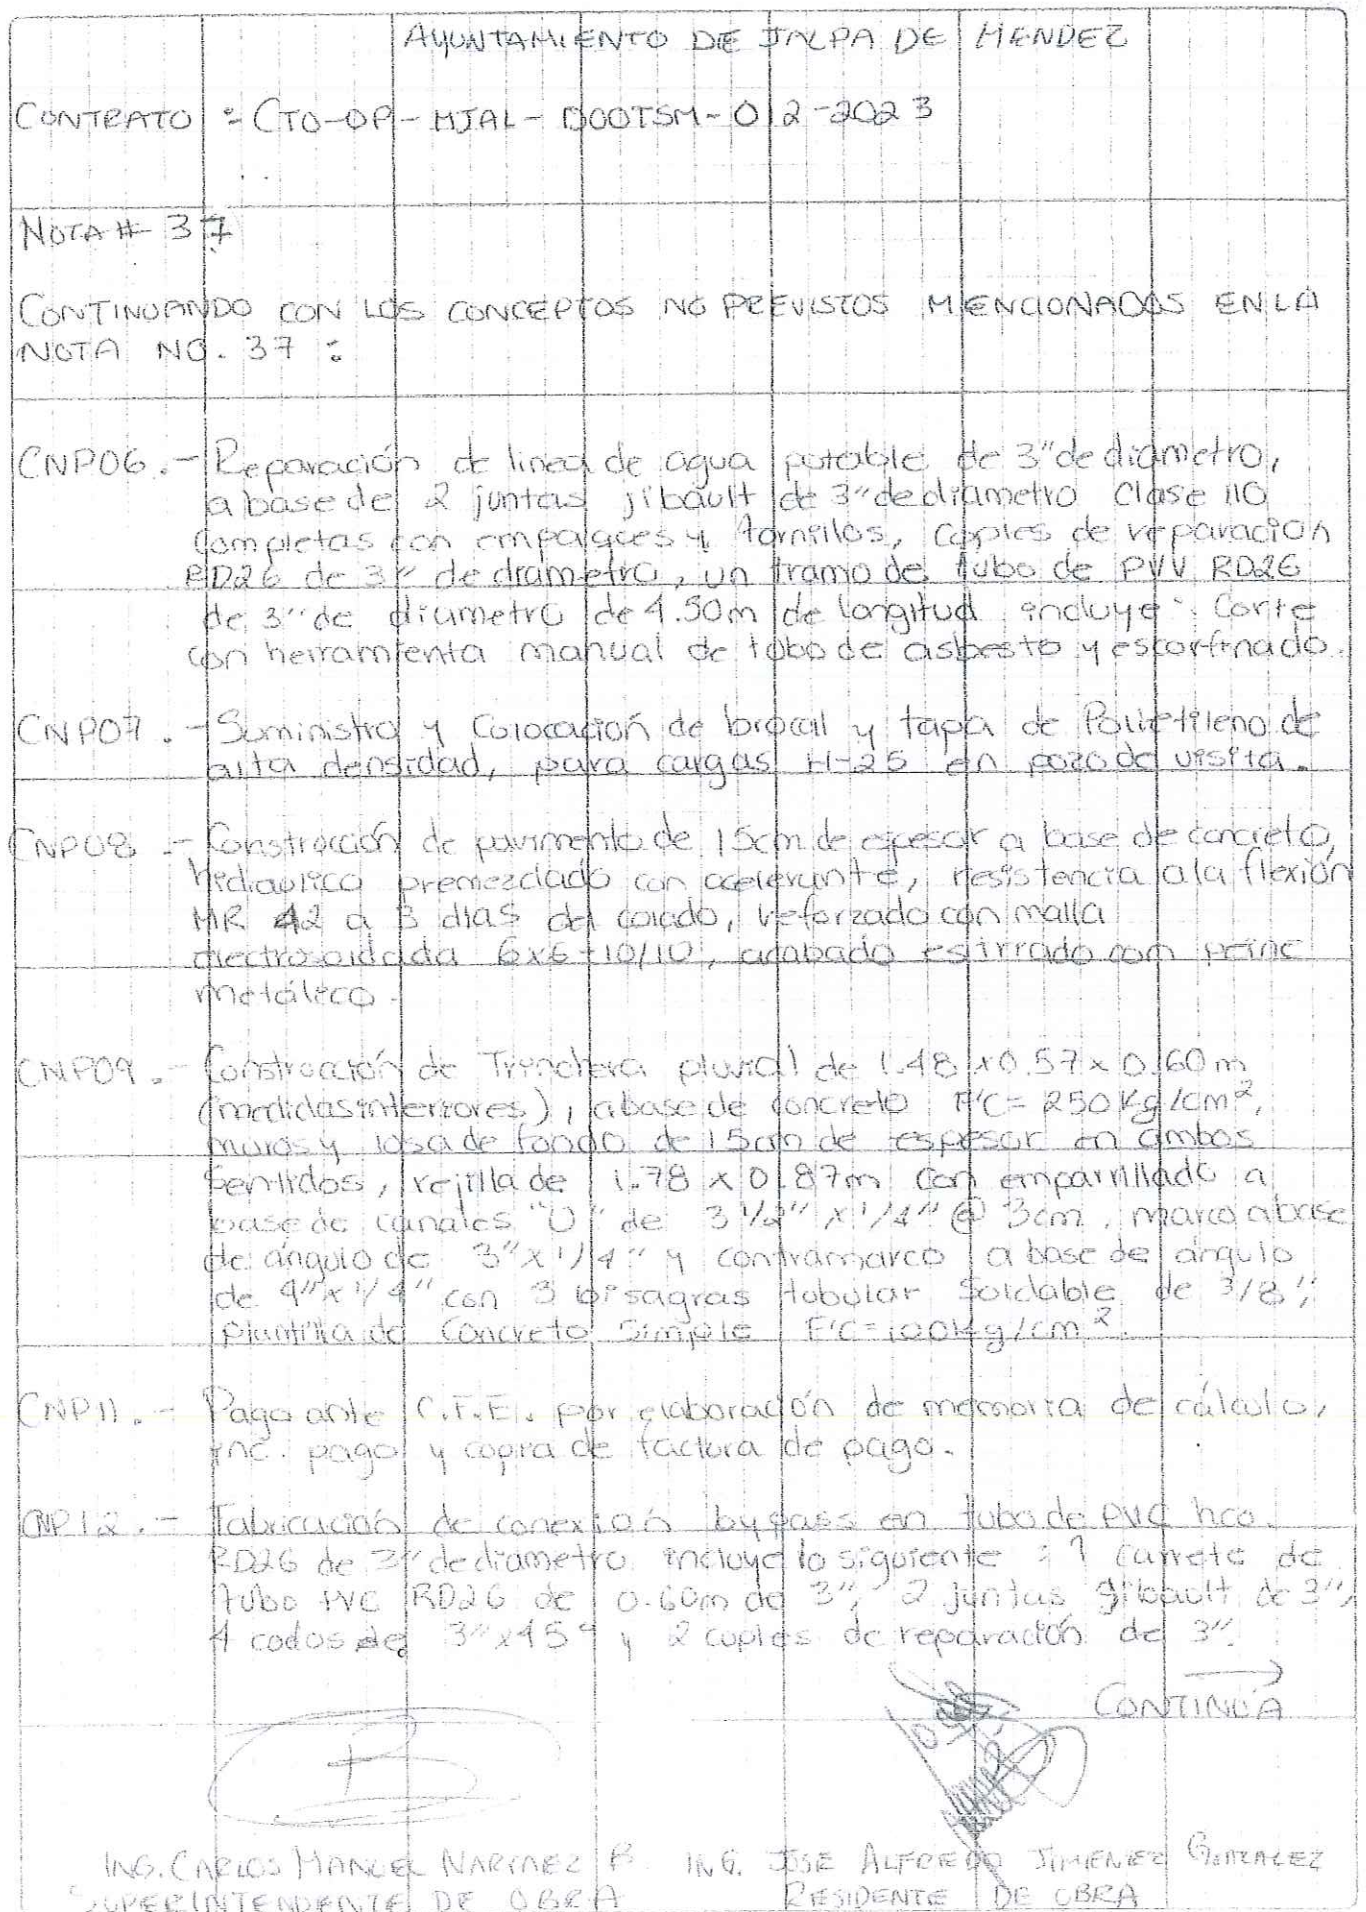 AYUNTAMIENTO DE JALPA DE MENDEZ
CONTRATO : CTO-OP-MJAL-DOOTSM-012-2023
NOTA # 37
CONTINUANDO CON LOS CONCEPTOS NO PREVISTOS MENCIONADOS EN LA
NOTA NO. 37 :
CNP06.- Reparación de linea de agua potable de 3" de diámetro,
a base de 2 juntas jibault de 3" de diametro Clase 110
completas con empaques y tornillos, coples de reparación
RD26 de 3" de diametro, un tramo de tubo de PVV RD26
de 3" de diametro de 4.50m de longitud incluye: Corte
con herramienta manual de tubo de asbesto y escorfinado.
CNP07.- Suministro y Colocación de brocal y tapa de Polietileno de
alta densidad, para cargas H-25 en pozo de visita.
CNP08.- Construcción de pavimento de 15cm de espesor a base de concreto,
hidraulico premezclado con acelerante, resistencia a la flexión
MR 42 a 3 dias del colado, reforzado con malla
electrosoldada 6x6-10/10, acabado estirrado con peine
metálico.
CNP09.- Construcción de Trinchera pluvial de 1.48 x 0.57 x 0.60 m
(medidas interiores), a base de concreto F'C= 250 Kg/cm²,
muros y losa de fondo de 15cm de espesor en ambos
Sentidos, rejilla de 1.78 x 0.87m con emparrillado a
base de canales "U" de 3 1/2" x 1/4" @ 3cm, marco a base
de ángulo de 3" x 1/4" y contramarco a base de ángulo
de 4" x 1/4" con 3 bisagras tubular Soldable de 3/8",
plantilla de Concreto Simple F'C=100Kg/cm²
CNP11.- Pago ante C.F.E. por elaboración de memoria de cálculo,
inc. pago y copia de factura de pago.
CNP12.- Fabricación de conexión bypass en tubo de PVC hco.
RD26 de 3" de diametro incluye lo siguiente : 1 Carrete de
tubo PVC RD26 de 0.60m de 3", 2 juntas gibault de 3",
4 codos de 3" x 45° y 2 coples de reparación de 3".
CONTINUA
ING. CARLOS MANUEL NARVAEZ P ING. JOSE ALFREDO JIMENEZ GONZALEZ
SUPERINTENDENTE DE OBRA RESIDENTE DE OBRA